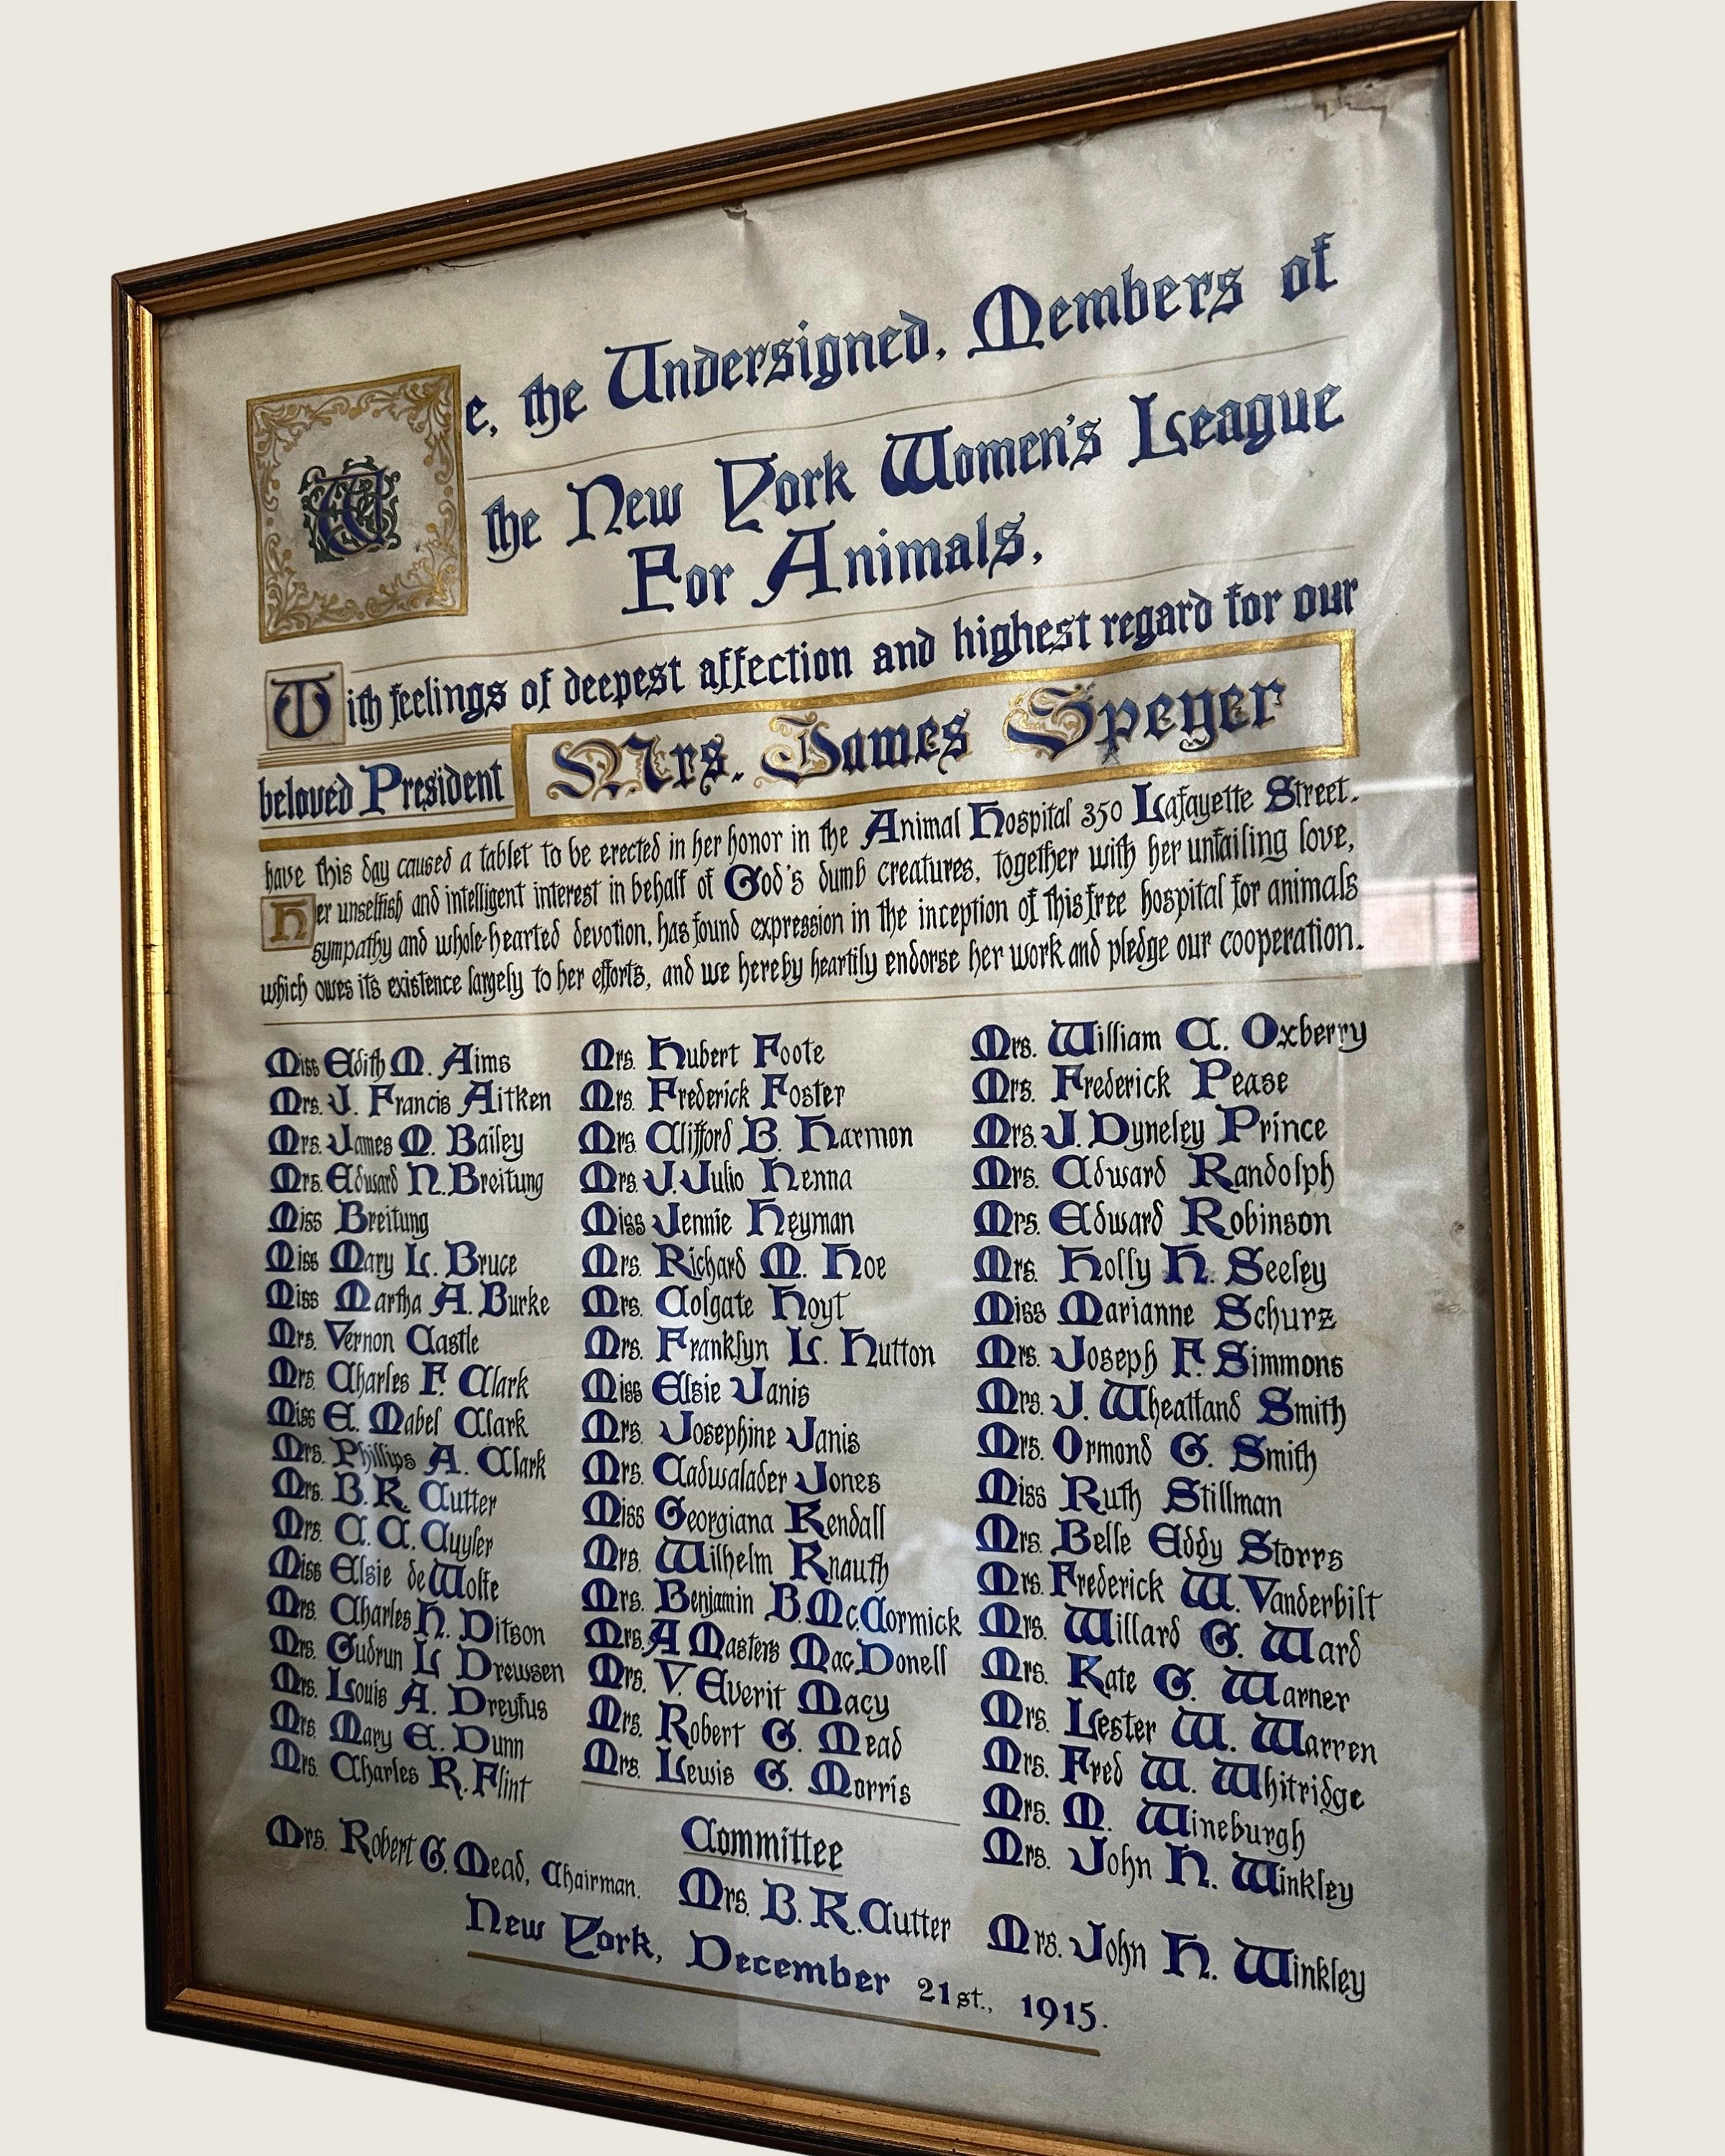 We, the Undersigned, Members of
the New York Women's League
For Animals,
With feelings of deepest affection and highest regard for our
beloved President Mrs. James Speyer
have this day caused a tablet to be erected in her honor in the Animal Hospital 350 Lafayette Street.
Her unselfish and intelligent interest in behalf of God's dumb creatures, together with her unfailing love,
sympathy and whole-hearted devotion, has found expression in the inception of this free hospital for animals
which owes its existence largely to her efforts, and we hereby heartily endorse her work and pledge our cooperation.
Miss Edith M. Aims
Mrs. J. Francis Aitken
Mrs. James M. Bailey
Mrs. Edward N. Breitung
Miss Breitung
Miss Mary L. Bruce
Miss Martha A. Burke
Mrs. Vernon Castle
Mrs. Charles F. Clark
Miss E. Mabel Clark
Mrs. Phillips A. Clark
Mrs. B. R. Cutter
Mrs. C. C. Cuyler
Miss Elsie de Wolfe
Mrs. Charles H. Ditson
Mrs. Gudrun L Drewsen
Mrs. Louis A. Dreyfus
Mrs. Mary E. Dunn
Mrs. Charles R. Flint
Mrs. Hubert Foote
Mrs. Frederick Foster
Mrs. Clifford B. Harmon
Mrs. J. Julio Henna
Miss Jennie Heyman
Mrs. Richard M. Hoe
Mrs. Colgate Hoyt
Mrs. Franklyn L. Hutton
Miss Elsie Janis
Mrs. Josephine Janis
Mrs. Cadwalader Jones
Miss Georgiana Kendall
Mrs. Wilhelm Knauth
Mrs. Benjamin B. Mc.Cormick
Mrs. A Masters MacDonell
Mrs. V. Everit Macy
Mrs. Robert G. Mead
Mrs. Lewis G. Morris
Mrs. William C. Oxberry
Mrs. Frederick Pease
Mrs. J. Dyneley Prince
Mrs. Edward Randolph
Mrs. Edward Robinson
Mrs. Holly H. Seeley
Miss Marianne Schurz
Mrs. Joseph F. Simmons
Mrs. J. Wheatland Smith
Mrs. Ormond G. Smith
Miss Ruth Stillman
Mrs. Belle Eddy Storrs
Mrs. Frederick W. Vanderbilt
Mrs. Willard G. Ward
Mrs. Kate G. Warner
Mrs. Lester W. Warren
Mrs. Fred W. Whitridge
Mrs. M. Wineburgh
Mrs. John H. Winkley
Committee
Mrs. Robert G. Mead, Chairman. Mrs. B. R. Cutter Mrs. John H. Winkley
New York, December 21st., 1915.